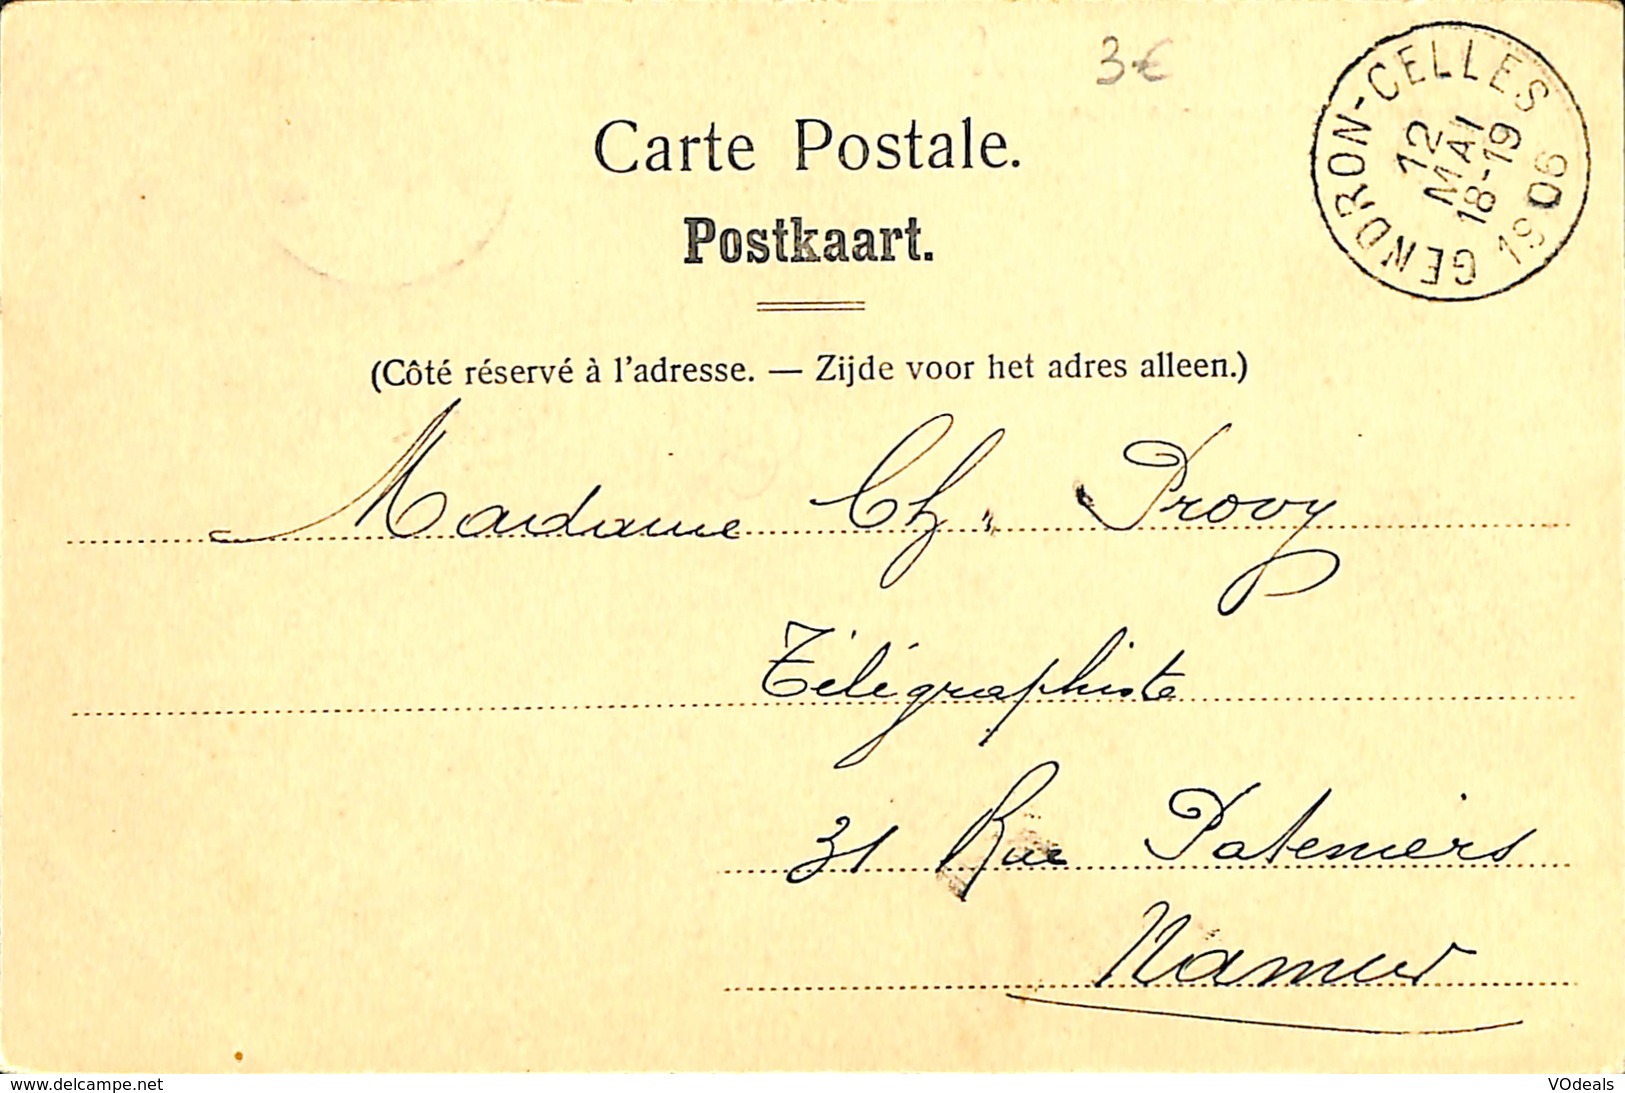 3€
Carte Postale.
Postkaart.
GENDRON-CELLES
12
MAI
18-19
1906
(Côté réservé à l'adresse. — Zijde voor het adres alleen.)
Madame Ch. Provy
Télégraphiste
31 Rue Pateniers
Namur
www.delcampe.net
VOdeals